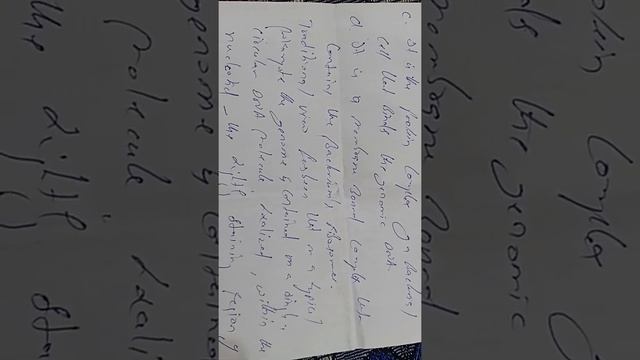 c. It is the protein complex of a bacterial
cell that binds the genomic DNA.
d. It is a membrane bound complex that
contains the bacterium's ribosomes.
Traditional view has been that in a typical
prokaryote the genome is contained in a single
circular DNA molecule, localized within the
nucleoid - the staining region of